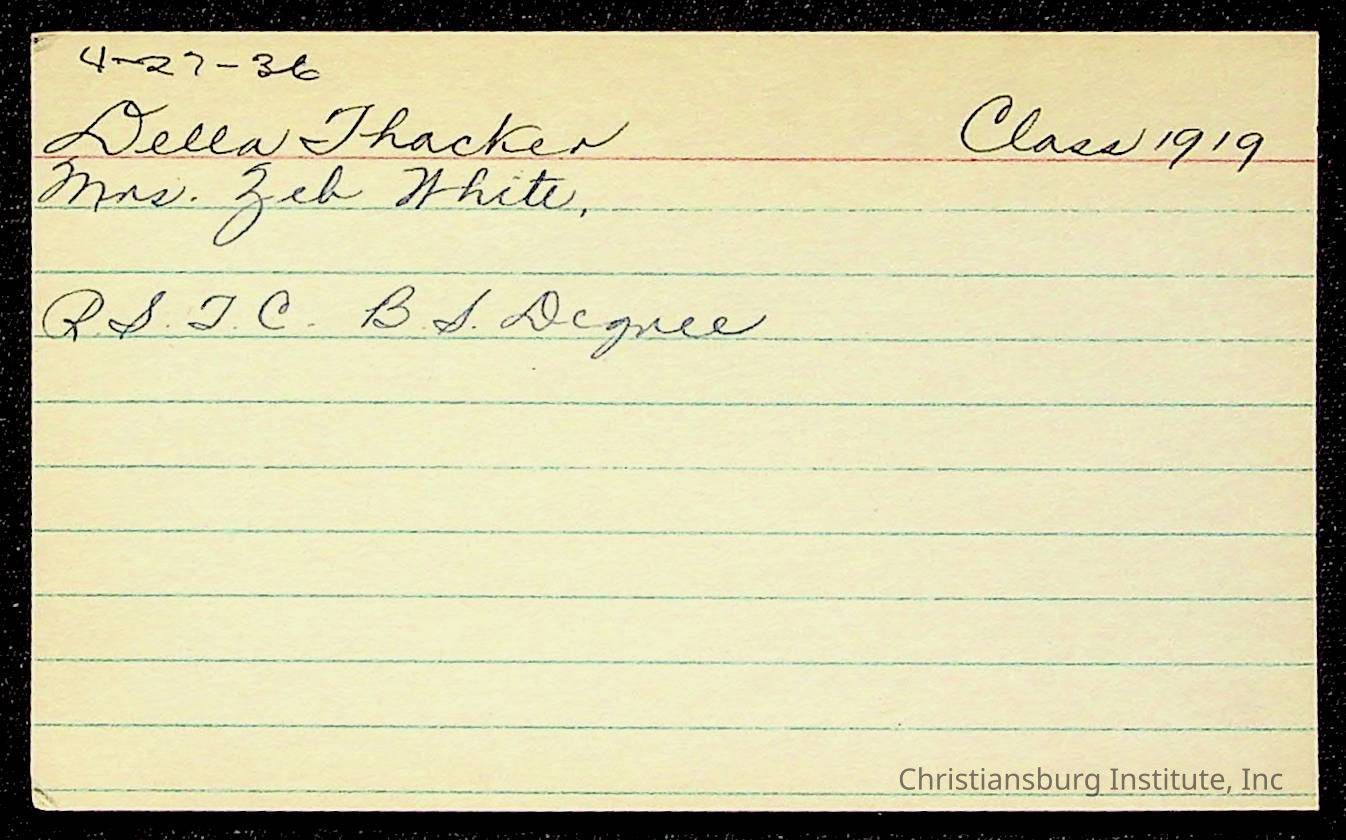 4-27-36
Della Thacker Class 1919
Mrs. Zeb White,
R.S.T.C. B.S. Degree
Christiansburg Institute, Inc